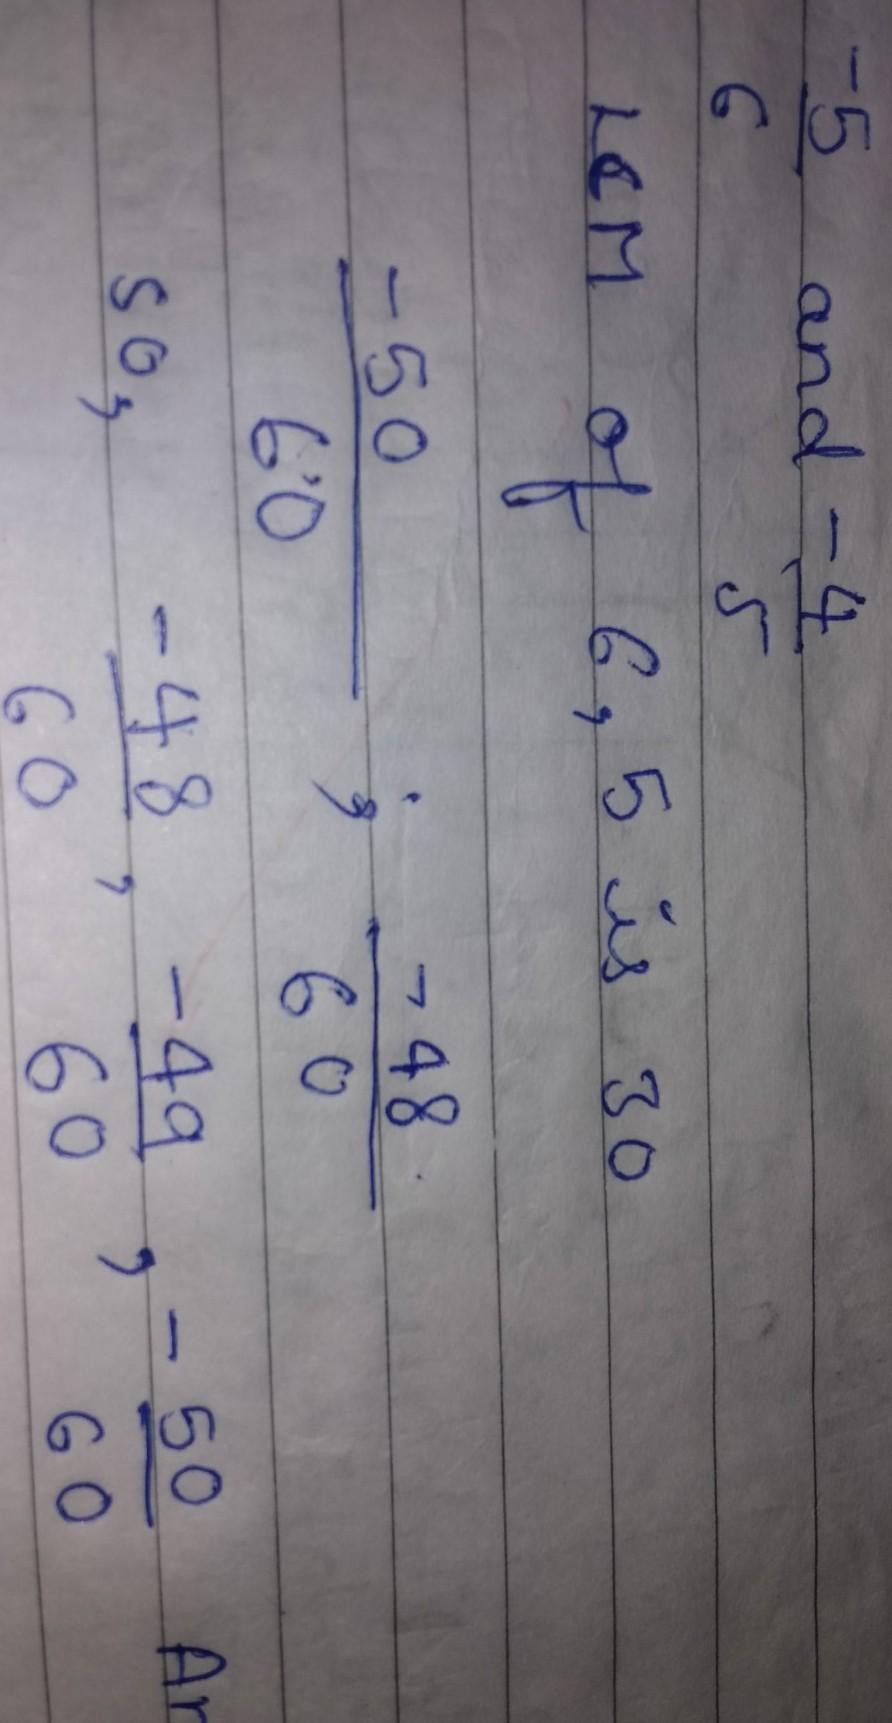 -5/6 and -4/5
LCM of 6, 5 is 30
-50/60 ; -48/60
so, -48/60 , -49/60 , -50/60 An